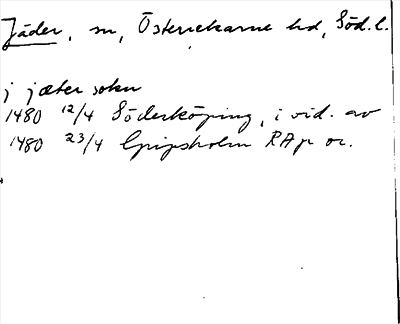 Jäder, sn, Österrekarne hd, Söd. l.
j jæter sokn
1480 12/4 Söderköping, i vid. av
1480 23/4 Gripsholm RAp or.